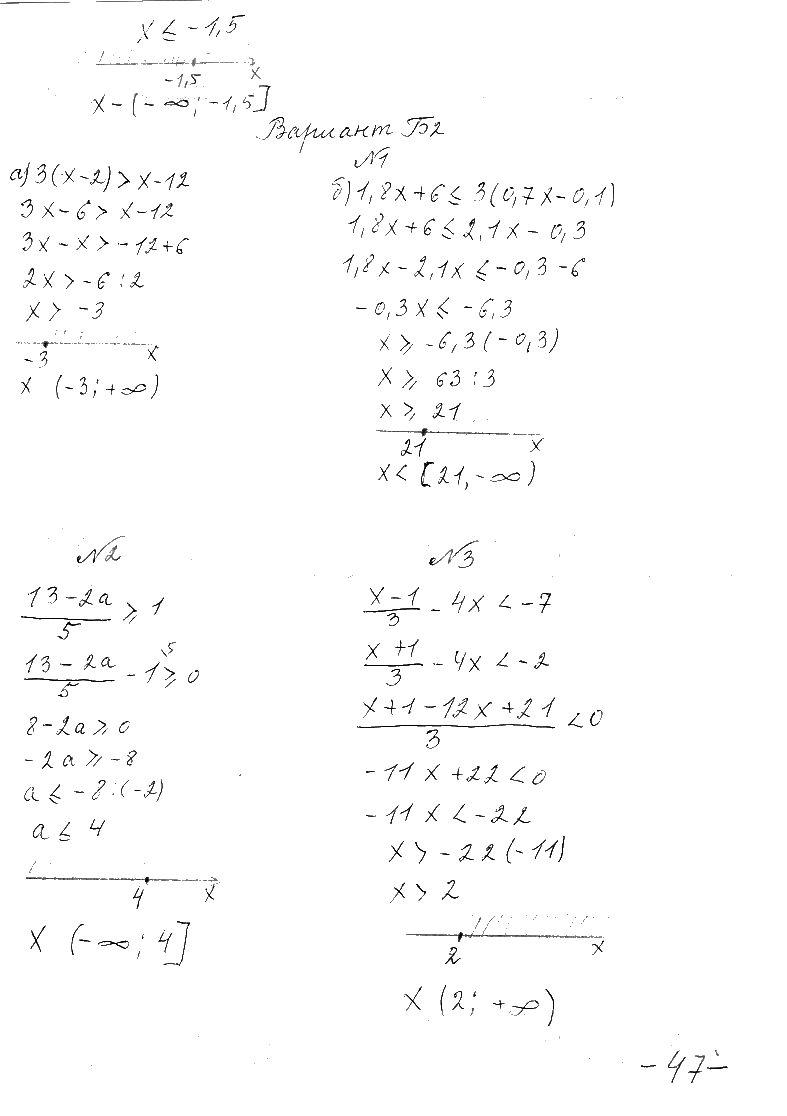 x ≤ -1,5
-1,5 x
x - (-∞; -1,5]
Вариант Б2
№1
а) 3(x-2) > x-12
3x-6 > x-12
3x-x > -12+6
2x > -6 :2
x > -3
-3 x
x (-3; +∞)
б) 1,8x+6 ≤ 3(0,7x-0,1)
1,8x+6 ≤ 2,1x - 0,3
1,8x-2,1x ≤ -0,3-6
-0,3x ≤ -6,3
x ≥ -6,3(-0,3)
x ≥ 63:3
x ≥ 21
21 x
x < [21,-∞)
№2
13-2a/5 ≥ 1
13-2a/5 - 1\5 ≥ 0
8-2a ≥ 0
-2a ≥ -8
a ≤ -8:(-2)
a ≤ 4
4 x
x (-∞; 4]
№3
x-1/3 - 4x < -7
x+1/3 - 4x < -2
x+1-12x+21/3 < 0
-11x+22 < 0
-11x < -22
x > -22(-11)
x > 2
2 x
x (2; +∞)
-47-